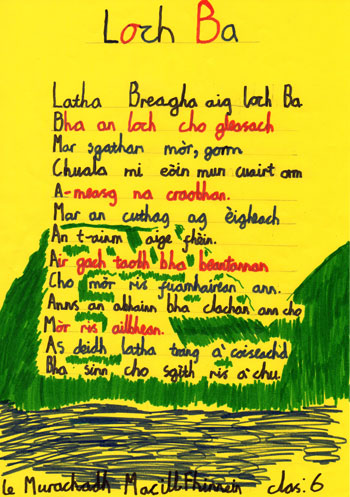 Loch Ba
Latha Breagha aig loch Ba
Bha an loch cho gleasach
Mar sgathan mòr, gorm
Chuala mi eòin mun cuairt orm
A-measg na craobhan.
Mar an cuthag ag èigheach
An t-ainm aige fhèin.
Air gach taobh bha beantannan
Cho mòr ris fuamhairean ann.
Anns an abhainn bha clachan ann cho
Mòr ris ailbhean.
As deidh latha trang a' coiseachd
Bha sinn cho sgìth ris a' chu.
le Murachadh MacillFhinnein clas: 6